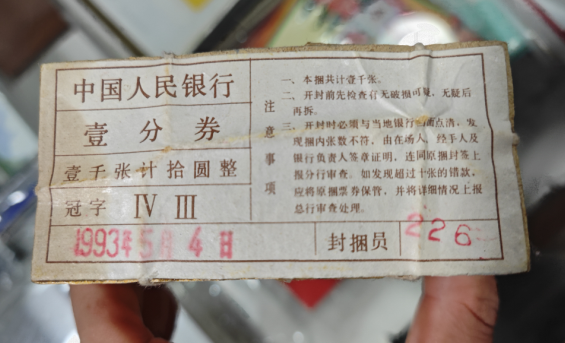 中国人民银行
壹分券
壹千张计拾圆整
冠字 IV III
1993年5月4日
注意事项
一、本捆共计壹千张。
二、开封前先检查有无破损可疑，无疑后
再拆。
三、开封时必须与当地银行 点清，发
现捆内张数不符，由在场人、经手人及
银行负责人签章证明，连同原捆封签上
报分行审查。如发现超过十张的错款，
应将原捆票券保管，并将详细情况上报
总行审查处理。
封捆员 226